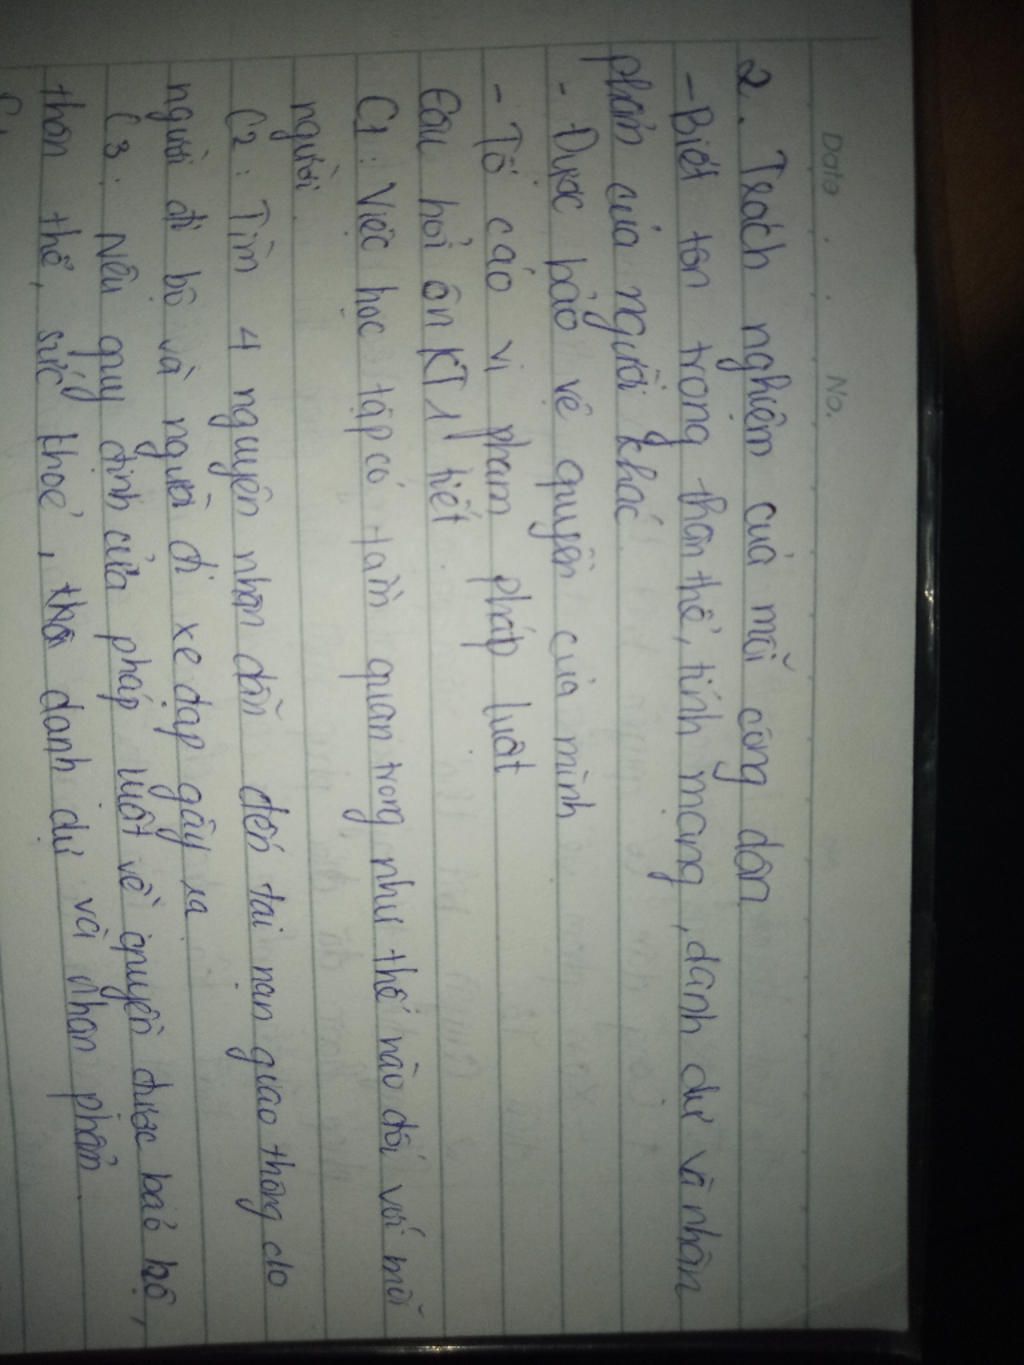 Date . . No.
2. Trách nghiệm của mỗi công dân
- Biết tôn trọng thân thể, tính mạng, danh dự và nhân
phẩm của người khác
- Được bảo vệ quyền của mình
- Tố cáo vi phạm pháp luật
Câu hỏi ôn KT 1 tiết
C1: Việc học tập có tầm quan trọng như thế nào đối với mỗi
người.
C2: Tìm 4 nguyên nhân dẫn đến tai nạn giao thông do
người đi bộ và người đi xe đạp gây ra
C3: Nêu quy định của pháp luật về quyền được bảo hộ,
thân thể, sức khoẻ, danh dự và nhân phẩm